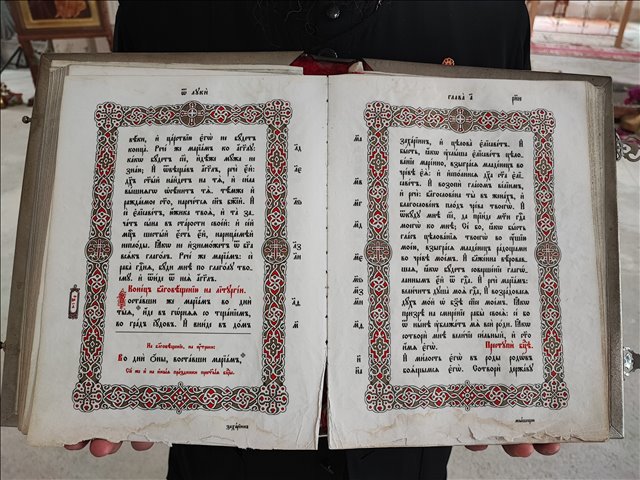 Ѿ лꙋкѝ
вѣ́ки, и҆ црⷭ҇твїю є҆гѡ̀ не бꙋ́детъ
конца̀. Рече́ же марїа́мъ ко а҆́гг҃лꙋ:
ка́кѡ бꙋ́детъ сїѐ, и҆дѣ́же мꙋ́жа не
зна́ю; И҆ ѿвѣща́въ а҆́гг҃лъ, речѐ є҆́й:
дх҃ъ ст҃ы́й на́йдетъ на тѧ̀, и҆ си́ла
вы́шнѧгѡ ѡ҆сѣни́тъ тѧ̀. тѣ́мже и҆
ражда́емое ст҃о, нарече́тсѧ сн҃ъ бж҃їй. И҆
сѐ є҆лїсаве́тъ, ю҆́жика твоѧ̀, и҆ та̀ за-
ча́тъ сы́на въ ста́рости свое́й: и҆ се́й
мц҃ъ шесты́й є҆́сть є҆́й, нарица́емѣй
непло́ды. Ꙗ҆́кѡ не и҆знемо́жетъ ѹ҆ бг҃а
всѧ́къ глаго́лъ. Рече́ же марїа́мъ: сѐ
раба̀ гдⷭ҇нѧ, бꙋ́ди мнѣ̀ по глаго́лꙋ тво-
емꙋ̀. и҆ ѿи́де ѿ неѧ̀ а҆́гг҃лъ.
Коне́цъ бл҃говѣ́щенїю на лїтꙋргі́и.
Воста́вши же марїа́мъ во дни̑
ты̑ѧ, и҆́де въ гѡ́рнѧѧ со тща́нїемъ,
во гра́дъ і҆ꙋ́довъ. И҆ вни́де въ до́мъ
На бл҃говѣ́щенїе, на ᲂу҆́трени:
Во дни̑ ѻ҆́ны, воста́вши марїа́мъ,
Сїѐ же и҆ на и҆ны̑ѧ пра́здники прⷭ҇ты́ѧ бцⷣы.
заха́рїинъ
л҃д
л҃е
л҃ѕ
л҃з
л҃и
л҃ѳ
м҃
глава̀ а҃
заха́рїинъ, и҆ цѣлова̀ є҆лїсаве́тъ. И҆
бы́сть, ꙗ҆́кѡ ᲂу҆слы́ша є҆лїсаве́тъ цѣло-
ва́нїе марі́ино, взыгра́сѧ младе́нецъ во
чре́вѣ є҆ѧ̀: и҆ и҆спо́лнисѧ дх҃а ст҃а є҆лїса-
ве́тъ. И҆ возопѝ гла́сомъ ве́лїимъ,
и҆ речѐ: блгⷭ҇ве́на ты̀ въ жена́хъ, и҆
блгⷭ҇ве́нъ пло́дъ чре́ва твоегѡ̀. И҆
ѿкꙋ́дꙋ мнѣ̀ сїѐ, да прїи́детъ мт҃и гдⷭ҇а
моегѡ̀ ко мнѣ̀; Се́ бо, ꙗ҆́кѡ бы́сть
гла́съ цѣлова́нїѧ твоегѡ̀ во ᲂу҆́шїю
моє́ю, взыгра́сѧ младе́нецъ ра́дощами
во чре́вѣ мое́мъ. И҆ бл҃же́нна вѣ́ровав-
шаѧ, ꙗ҆́кѡ бꙋ́детъ соверше́нїе глаго́-
ланнымъ є҆́й ѿ гдⷭ҇а. И҆ речѐ марїа́мъ:
вели́читъ дꙋша̀ моѧ̀ гдⷭ҇а, И҆ возра́довасѧ
дꙋ́хъ мо́й ѡ҆ бз҃ѣ сп҃сѣ мое́мъ. Ꙗ҆́кѡ
призрѣ̀ на смире́нїе рабы̀ своеѧ̀: се́ бо
ѿ нн҃ѣ ᲂу҆бл҃жа́тъ мѧ̀ всѝ ро́ди. Ꙗ҆́кѡ
сотворѝ мнѣ̀ вели́чїе си́льный, и҆ ст҃о
и҆́мѧ є҆гѡ̀. Престꙋпѝ бцⷣѣ.
И҆ ми́лость є҆гѡ̀ въ ро́ды родѡ́въ
боѧ́щымсѧ є҆гѡ̀. Сотворѝ держа́вꙋ
мы́шцею
м҃а
м҃в
м҃г
м҃д
м҃е
м҃ѕ
м҃з
м҃и
м҃ѳ
н҃
н҃а